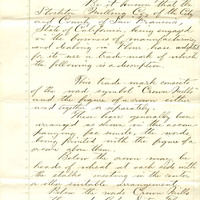 Be it known that the
Stockton Milling Co. of the City
and County of San Francisco,
State of California, being engaged
in the business of manufacturing
and dealing in Flour have adopted
for its use a trade mark of which
the following is a description.
This trade mark consists
of the word symbol "Crown Mills"
and the figure of a crown either
used together or separately.
These have generally been
arranged as shown in the accom-
panying fac simile, the words
being printed with the figure of a
crown above them.
Below the crown may be
heads of wheat at each side with
the stalks meeting in the center
or other suitable arrangement.
Below the words Crown Mills